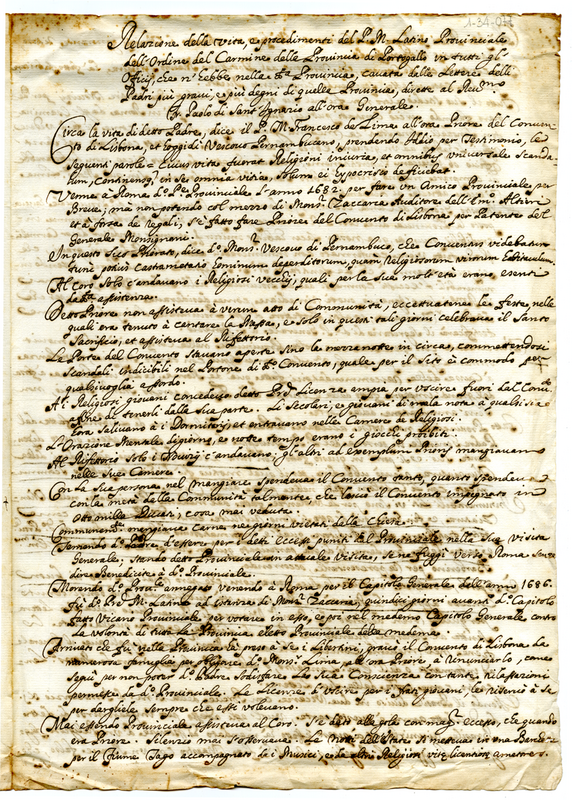 1-34-011
Relazione della vita, e procedimenti del P. M. Latino Provinciale
dell'Ordine del Carmine della Provincia di Portogallo in tutti gl'
Officij, che n'hebbe nella Provincia, cavata dalle Lettere delli
Padri più gravi, e più degni di quella Provincia, dirette al Reumo
Pr. Paolo di Sant'Ignazio all'ora Generale.
Circa la vita di detto Padre, dice il P. M. Francesco de Lima all'ora Priore del Conven
to di Lisbona, et hoggidi Vescovo Pernambucano, prendendo Iddio per Testimonio, le
seguenti parole = Cuius vita fuerat Religioni iniuria, et omnibus universale scanda
lum, continens in se omnia vitia, solum ei hypocrisis deficiebat.
Venne à Roma d.o Pre Provinciale l'anno 1682. per fare un Amico Provinciale per
Breve; ma non potendo col mezzo di Monsr Zaccaria Auditore dell'Em. Altieri
et à forza de Regali, s'è fatto fare Priore del Convento di Lisbona per Patente del
Generale Monsignani.
In questo suo Priorato, dice d.o Monsr Vescovo di Pernambuco, che Conventus videbatur
tunc potius castrametatio hominum deperditorum, quam religiosorum virorum habitaculum.
Al Coro solo c'andavano i Religiosi vecchij, quali per la sua molt'età erano esenti
dalla assistenza.
Detto Priore non assisteva à verun atto di Communità, eccettuatene le feste, nelle
quali era tenuto à cantare la Messa, e solo in questi tali giorni celebrava il Santo
Sacrificio, et assisteva al Refettorio.
Le Porte del Convento stavano aperte sino la mezza notte in circa, commettendosi
scandali indicibili nel Portone di d.o Convento, quale per il sito è commodo per
qualsivoglia accordo.
A i Religiosi giovani concedeva detto Prior Licenza ampia per uscire fuori dal Conv.to
à fine di tenerli dalla sua parte. Li Secolari, e giovani di mala nota à qualsisia
hora salivano à i Dormitorij et entravano nelle Camere de Religiosi.
L'Orazione Mentale di giorno, e notte tempo erano i giochi prohibiti.
Al Refettorio solo i Novizij c'andavano; gl'altri ad exemplum Prioris mangiavano
nelle sue Camere.
Con la sua persona nel mangiare spendeva il Convento tanto, quanto spendeva
con la metà della Communità talmente, che lasciò il Convento impegnato in
otto milla Ducati, cosa mai veduta.
Communem.te mangiava carne nei giorni vietati dalla Chiesa.
Temendo d.o Padre d'essere per i detti eccessi puniti dal Provinciale nella sua Visita
Generale; stando detto Provinciale in attuale visita, se ne fuggì verso Roma senza
dire Benedicite à d.o Provinciale.
Morendo d.o Provle annegato venendo à Roma per il Capitolo Generale dell'anno 1686.
fù d.o Pre M. Latino ad istanza di Monsr Zaccaria, quindici giorni avanti d.o Capitolo
fatto Vicario Provinciale per votare in esso, e poi nel medemo Capitolo Generale contro
la volontà di tutta la Provincia eletto Provinciale della medema.
Arrivato che fù nella Provincia si prese à se i Libertini, gravò il Convento di Lisbona da
numerosa famiglia per sforzare d.o Monsr Lima, all'ora Priore, à renunciarlo, come
seguì per non poter d.o Padre sodisfare la sua Conscienza con tante rilassazioni
permesse da d.o Provinciale. Le Licenze d'uscire per i frati giovani, le riservò à se
per dargliele sempre che essi volevano.
Mai essendo Provinciale assisteva al Coro. S'è dato alla gola con magr eccesso, che quando
era Priore. Silenzio mai s'osservava. Le notti dell'Estate si metteva in una Barca
per il fiume Tago accompagnato da i Musici, e da altri Religiosi vitę licentioris amatores.